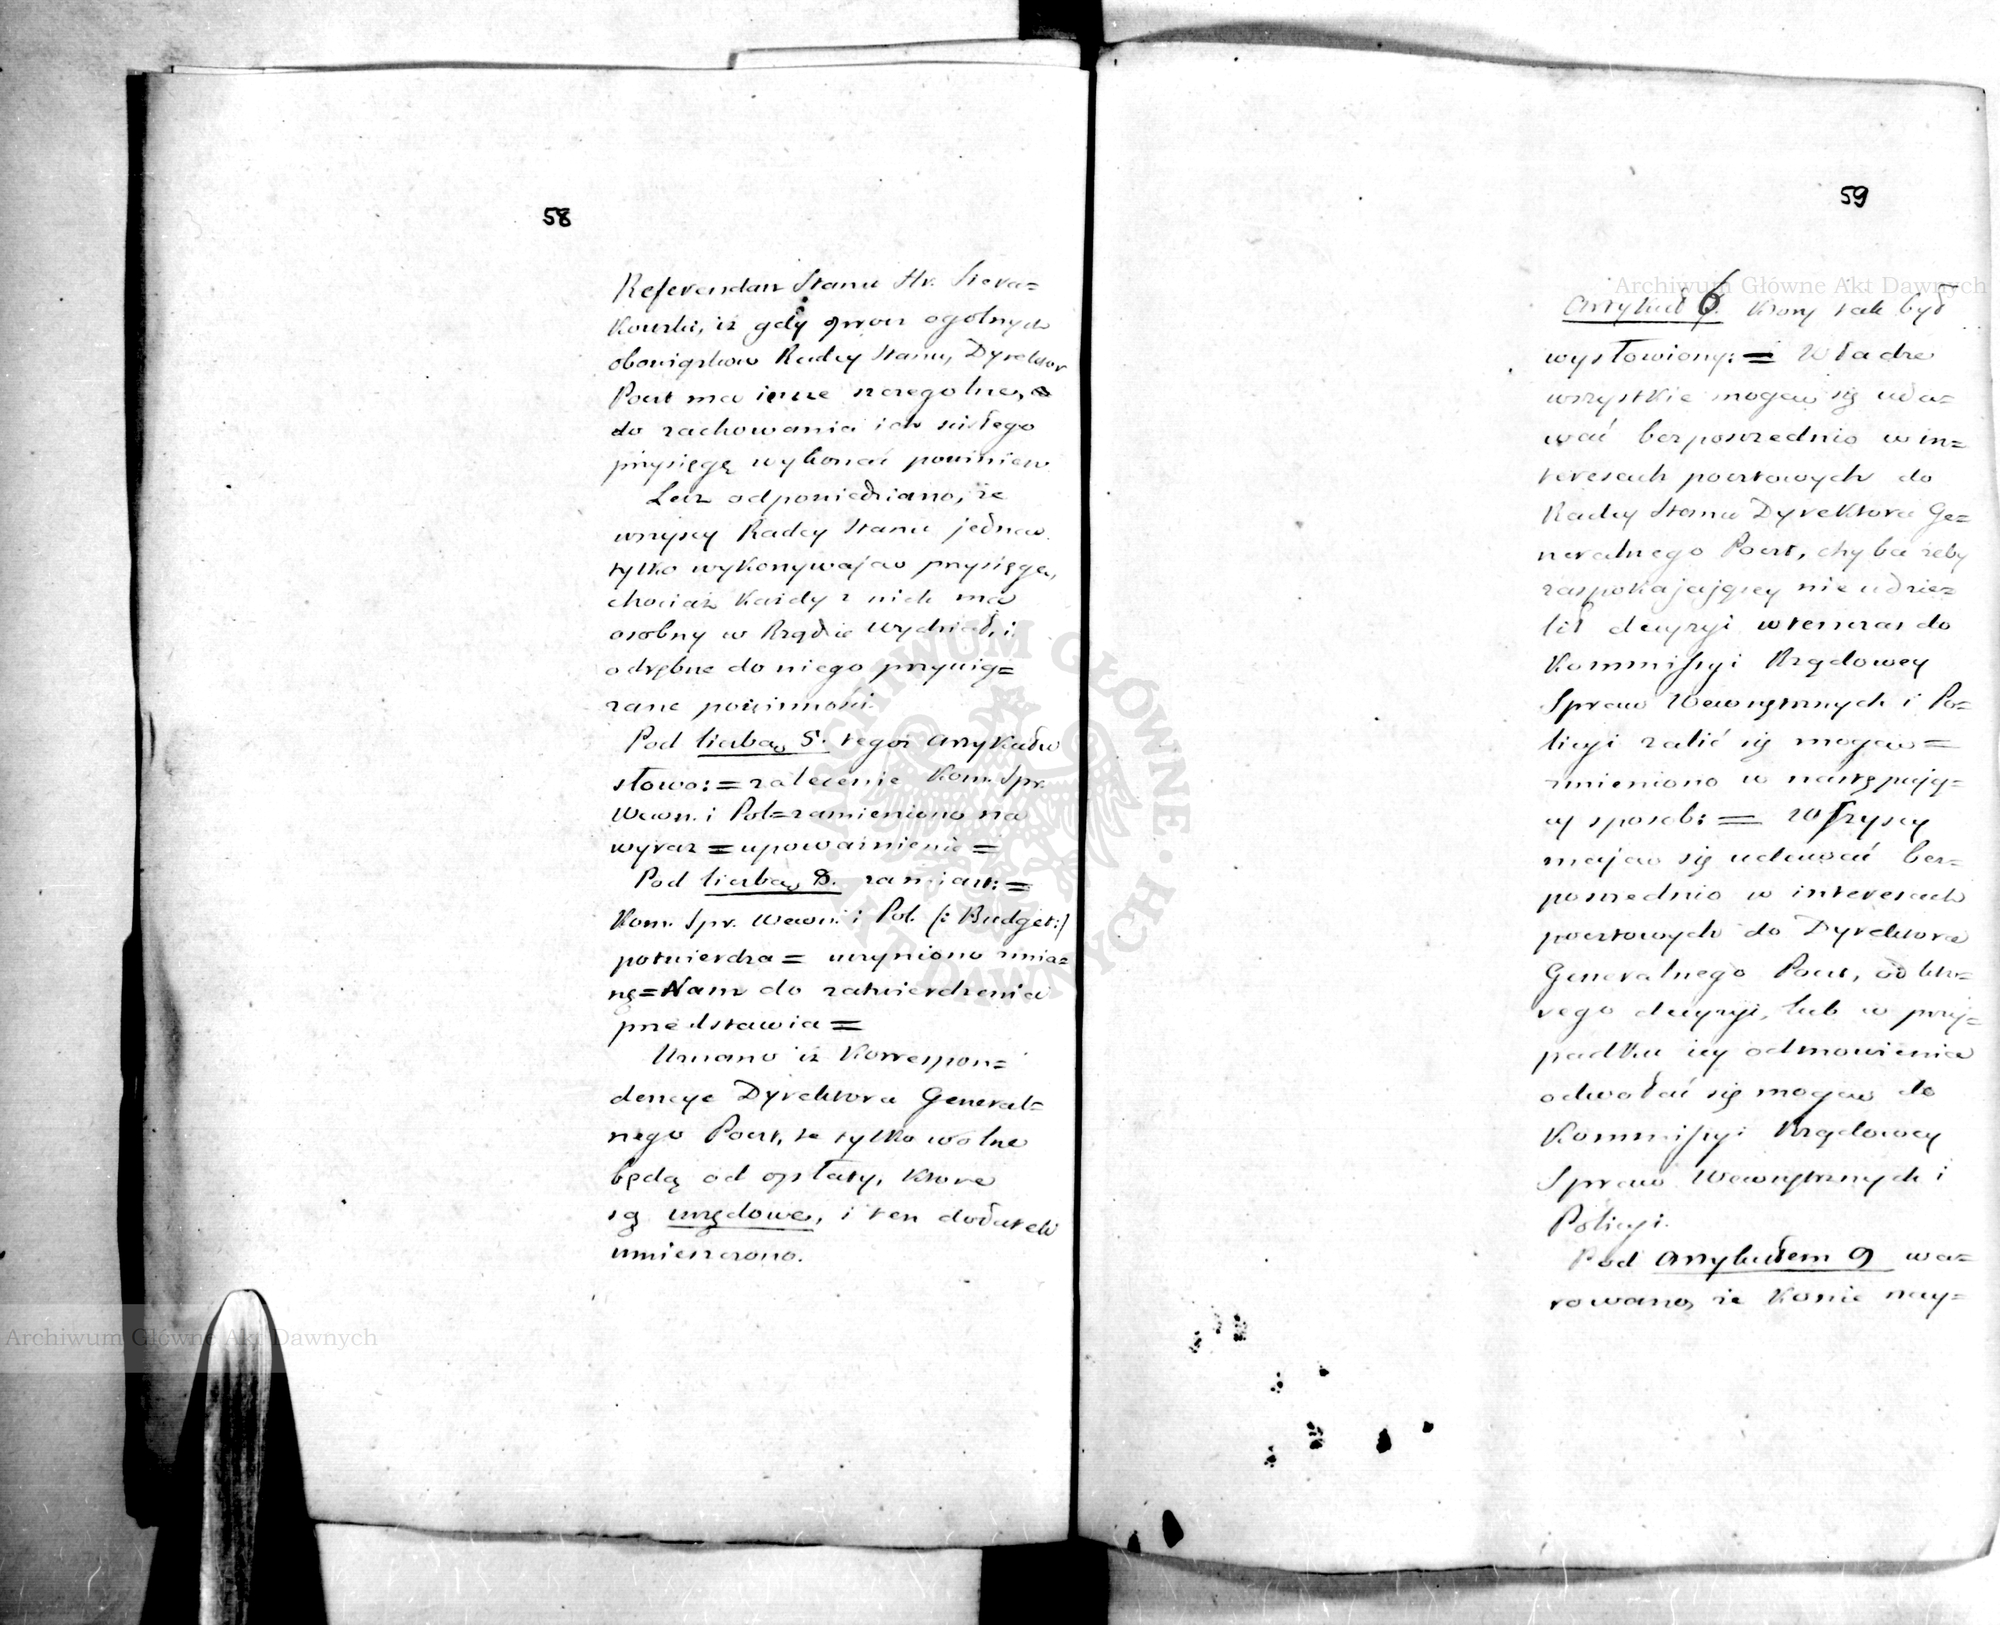 58
Referendarz Stanu Hr. Siera=
kowski, iż gdy prócz ogólnych
obowiązków Radcy Stanu, Dyrektor
Poczt ma inne szczególne,
do zachowania ich ścisłego
przysięgę wykonać powinien.
Lecz odpowiedziano, że
wszyscy Radcy Stanu jedną
tylko wykonywają przysięgę,
chociaż każdy z nich ma
osobny w Rządzie Wydział, i
odrębne do niego przywią=
zane powinności.
Pod liczbą 5. tegoż Artykułu
słowo: = zalecenie Kom. Spr.
Wewn. i Pol = zamieniono na
wyraz = upoważnienie =
Pod liczbą 8. zamiast: =
Kom. Spr. Wewn. i Pol. (: Budget :)
potwierdza = uczyniono zmia=
nę = Nam do zatwierdzenia
przedstawia =
Uznano iż Korrespon=
dencye Dyrektora General=
nego Poczt, te tylko wolne
będą od opłaty, które
są urzędowe, i ten dodatek
umieszczono.
59
Archiwum Główne Akt Dawnych
Artykuł 6. który tak był
wysłowiony: = Władze
wszystkie mogą się uda=
wać bezpośrednio w in=
teresach pocztowych do
Radcy Stanu Dyrektora Ge=
neralnego Poczt, chyba żeby
zaspokajającey nie udzie=
lił decyzyi wtenczas do
Kommissyi Rządowey
Spraw Wewnętrznych i Po=
licyi żalić się mogą =
zmieniono w następują=
cy sposób: = Wszyscy
mają się udawać bez=
pośrednio w interesach
pocztowych do Dyrektora
Generalnego Poczt, od któ=
rego decyzyi, lub w przy=
padku iey odmowienia
odwołać się mogą do
Kommissyi Rządowey
Spraw Wewnętrznych i
Policyi.
Pod Artykułem 9 wa=
rowano, że konie nay=
ARCHIWUM GŁÓWNE AKT DAWNYCH
Archiwum Główne Akt Dawnych